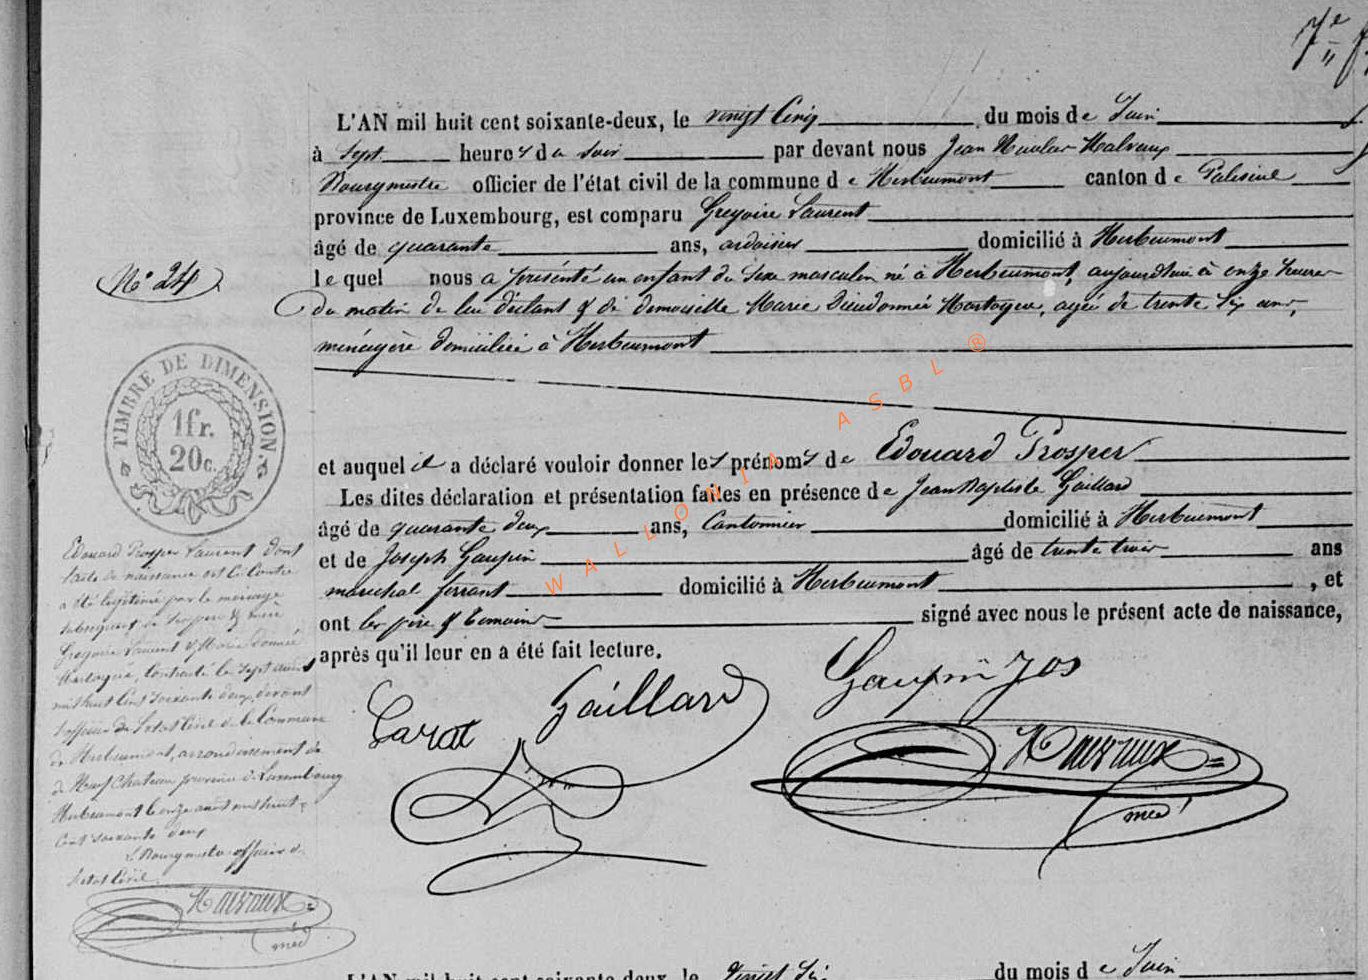 7e
L'AN mil huit cent soixante-deux, le vingt Cinq du mois de Juin
à Sept heures du soir par devant nous Jean Nicolas
Bourgmestre officier de l'état civil de la commune de Herbeumont canton de Paliseul
province de Luxembourg, est comparu Grégoire Laurent
âgé de quarante ans, ardoisier domicilié à Herbeumont
lequel nous a présenté un enfant du sexe masculin né à Herbeumont, aujourdhui à onze heures
N° 24
du matin de lui déclarant & de demoiselle Marie Dieudonnée, agée de trente six ans,
ménagère domiciliée à Herbeumont
TIMBRE DE DIMENSION.
1fr.
20c.
et auquel il a déclaré vouloir donner les prénoms de Edouard Prosper
Les dites déclaration et présentation faites en présence de Jean Baptiste Gaillard
âgé de quarante deux ans, Cantonnier domicilié à Herbeumont
et de Joseph Goupin âgé de trente trois ans
maréchal ferrant domicilié à Herbeumont, et
ont les père & témoins signé avec nous le présent acte de naissance,
après qu'il leur en a été fait lecture.
Edouard Prosper Laurent dont
l'acte de naissance est Ci Contre
a été légitimé par le mariage
subséquent de ses père & mère
Grégoire Laurent & Marie
contracté le sept août
mil huit Cent soixante deux devant
l'officier de l'état Civil de la Commune
de Herbeumont, arrondissement de
de Neufchateau province de Luxembourg
Herbeumont le onze août mil huit
Cent soixante deux
Le Bourgmestre officier de
l'état Civil
Gaillard
Goupin Jos
méd
méd
WALLONIA ASBL ®
L'AN mil huit cent soixante-deux, le Vingt Six du mois de Juin